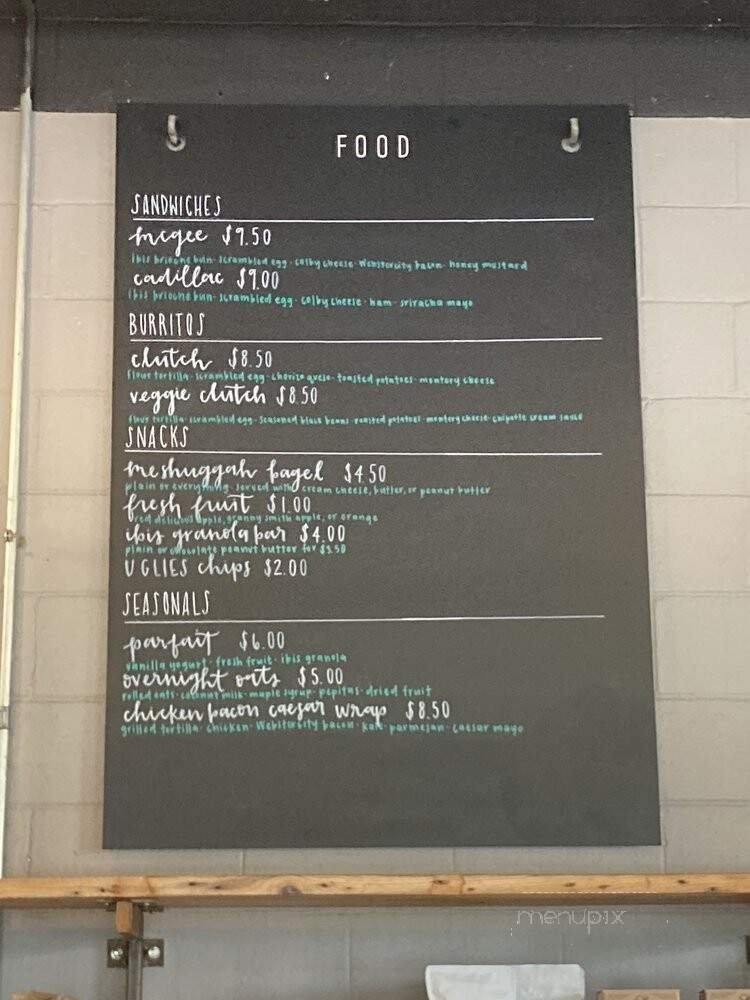 FOOD
SANDWICHES
mcgee $9.50
ibis brioche bun · scrambled egg · colby cheese · Webstercity bacon · honey mustard
cadillac $9.00
ibis brioche bun · scrambled egg · colby cheese · ham · sriracha mayo
BURRITOS
clutch $8.50
flour tortilla · scrambled egg · chorizo queso · toasted potatoes · montery cheese
veggie clutch $8.50
flour tortilla · scrambled egg · seasoned black beans · roasted potatoes · montery cheese · chipotle cream sauce
SNACKS
meshuggah bagel $4.50
plain or everything · served with cream cheese, butter, or peanut butter
fresh fruit $1.00
red delicious apple, granny smith apple, or orange
ibis granola bar $4.00
plain or chocolate peanut butter for $3.50
UGLIES chips $2.00
SEASONALS
parfait $6.00
vanilla yogurt · fresh fruit · ibis granola
overnight oats $5.00
rolled oats · coconut milk · maple syrup · pepitas · dried fruit
chicken bacon caesar wrap $8.50
grilled tortilla · chicken · Webstercity bacon · kale · parmesan · caesar mayo
menupix